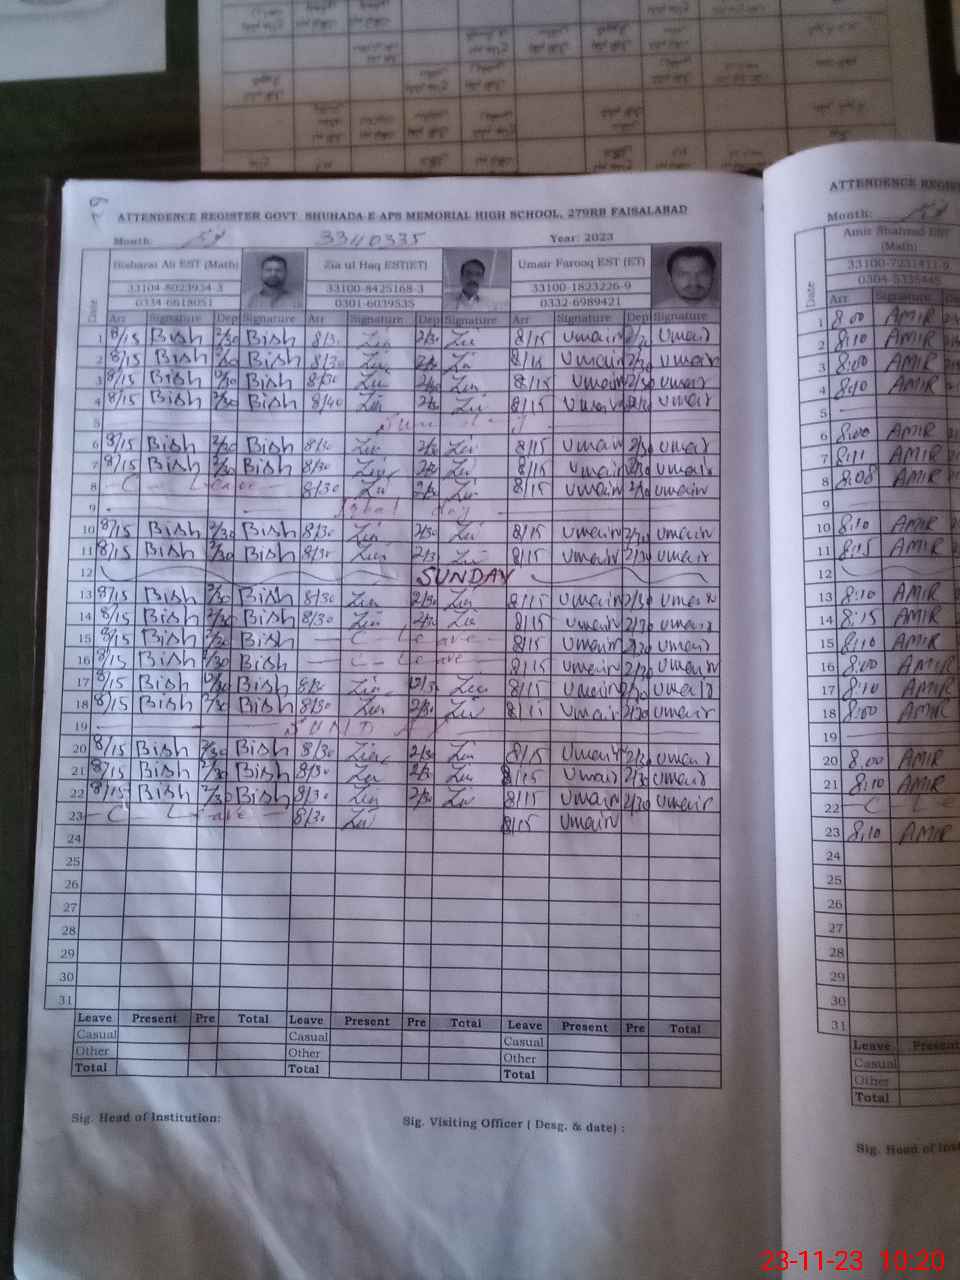 ATTENDENCE REGISTER GOVT. SHUHADA-E-APS MEMORIAL HIGH SCHOOL, 279RB FAISALABAD
Month: نومبر 3340335 Year: 2023
Date Bisharat Ali EST (Math) Zia ul Haq EST(ET) Umair Farooq EST (ET)
33104-8023934-3 33100-8425168-3 33100-1823226-9
0334-6618051 0301-6039535 0332-6989421
Arr Signature Dep Signature Arr Signature Dep Signature Arr Signature Dep Signature
1 8/15 Bish 2/30 Bish 8/30 Zia 2/30 Zia 8/15 Umair 2/30 Umair
2 8/15 Bish 2/30 Bish 8/30 Zia 2/30 Zia 8/15 Umair 2/30 Umair
3 8/15 Bish 2/30 Bish 8/30 Zia 2/30 Zia 8/15 Umair 2/30 Umair
4 8/15 Bish 2/30 Bish 8/40 Zia 2/30 Zia 8/15 Umair 2/30 Umair
5 Sunday
6 8/15 Bish 2/30 Bish 8/30 Zia 2/30 Zia 8/15 Umair 2/30 Umair
7 8/15 Bish 2/30 Bish 8/30 Zia 2/30 Zia 8/15 Umair 2/30 Umair
8 C - Leave 8/30 Zia 2/30 Zia 8/15 Umair 2/30 Umair
9 Iqbal day
10 8/15 Bish 2/30 Bish 8/30 Zia 2/30 Zia 8/15 Umair 2/30 Umair
11 8/15 Bish 2/30 Bish 8/30 Zia 2/30 Zia 8/15 Umair 2/30 Umair
12 SUNDAY
13 8/15 Bish 2/30 Bish 8/30 Zia 2/30 Zia 8/15 Umair 2/30 Umair
14 8/15 Bish 2/30 Bish 8/30 Zia 2/30 Zia 8/15 Umair 2/30 Umair
15 8/15 Bish 2/30 Bish C - Leave 8/15 Umair 2/30 Umair
16 8/15 Bish 2/30 Bish C - Leave 8/15 Umair 2/30 Umair
17 8/15 Bish 12/30 Bish 8/30 Zia 12/30 Zia 8/15 Umair 12/30 Umair
18 8/15 Bish 2/30 Bish 8/30 Zia 2/30 Zia 8/15 Umair 2/30 Umair
19 SUNDAY
20 8/15 Bish 2/30 Bish 8/30 Zia 2/30 Zia 8/15 Umair 2/30 Umair
21 8/15 Bish 2/30 Bish 8/30 Zia 2/30 Zia 8/15 Umair 2/30 Umair
22 8/15 Bish 2/30 Bish 8/30 Zia 2/30 Zia 8/15 Umair 2/30 Umair
23 C - Leave 8/30 Zia 8/15 Umair
24
25
26
27
28
29
30
31
Leave Present Pre Total Leave Present Pre Total Leave Present Pre Total
Casual Casual Casual
Other Other Other
Total Total Total
Sig. Head of Institution: Sig. Visiting Officer ( Desg. & date) :
ATTENDENCE
Month: نومبر
Date Amir Shahzad EST
(Math)
33100-7231411-9
0304-5335445
Arr Signature
1 8:00 AMIR
2 8:10 AMIR
3 8:00 AMIR
4 8:10 AMIR
5
6 8:00 AMIR
7 8:11 AMIR
8 8:08 AMIR
9
10 8:10 AMIR
11 8:15 AMIR
12
13 8:10 AMIR
14 8:15 AMIR
15 8:10 AMIR
16 8:00 AMIR
17 8:10 AMIR
18 8:00 AMIR
19
20 8:00 AMIR
21 8:10 AMIR
22 C
23 8:10 AMIR
24
25
26
27
28
29
30
31
Leave Present
Casual
Other
Total
Sig. Head of
23-11-23 10:20